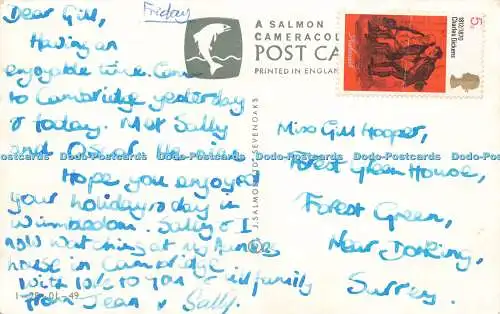 Friday
Dear Gill,
Having an
enjoyable time. Came
to Cambridge yesterday
& today. Met Sally
and Oscar. He is nice.
Hope you enjoyed
your holiday & day in
Wimbledon. Sally & I
now watching at my Aunties
house in Cambridge
with love to you & family
from Jean & Sally.
1-25-01-49
A SALMON
CAMERACOL
POST CA
PRINTED IN ENGLAN
J. SALMON LTD., SEVENOAKS
©
5d
1812/1870
Charles Dickens
Miss Gill Hooper,
Forest Green House,
Forest Green,
Near Dorking,
Surrey.
Dodo-Postcards Dodo-Postcards Dodo-Postcards Dodo-Postcards Dodo-Postcards